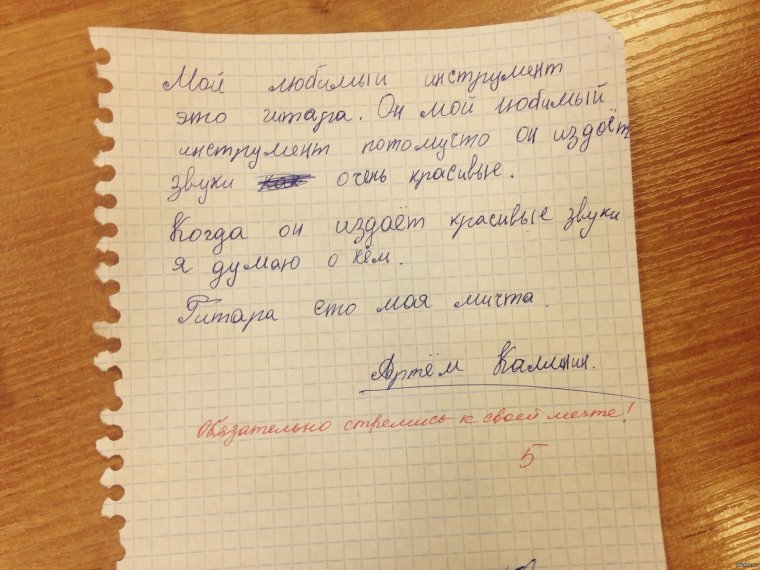 Мой любимый инструмент
это гитара. Он мой любимый
инструмент потомучто он издаёт
звуки очень красивые.
Когда он издаёт красивые звуки
я думаю о нём.
Гитара ето моя мичта.
Артём Калинин.
Обязательно стремись к своей мечте!
5